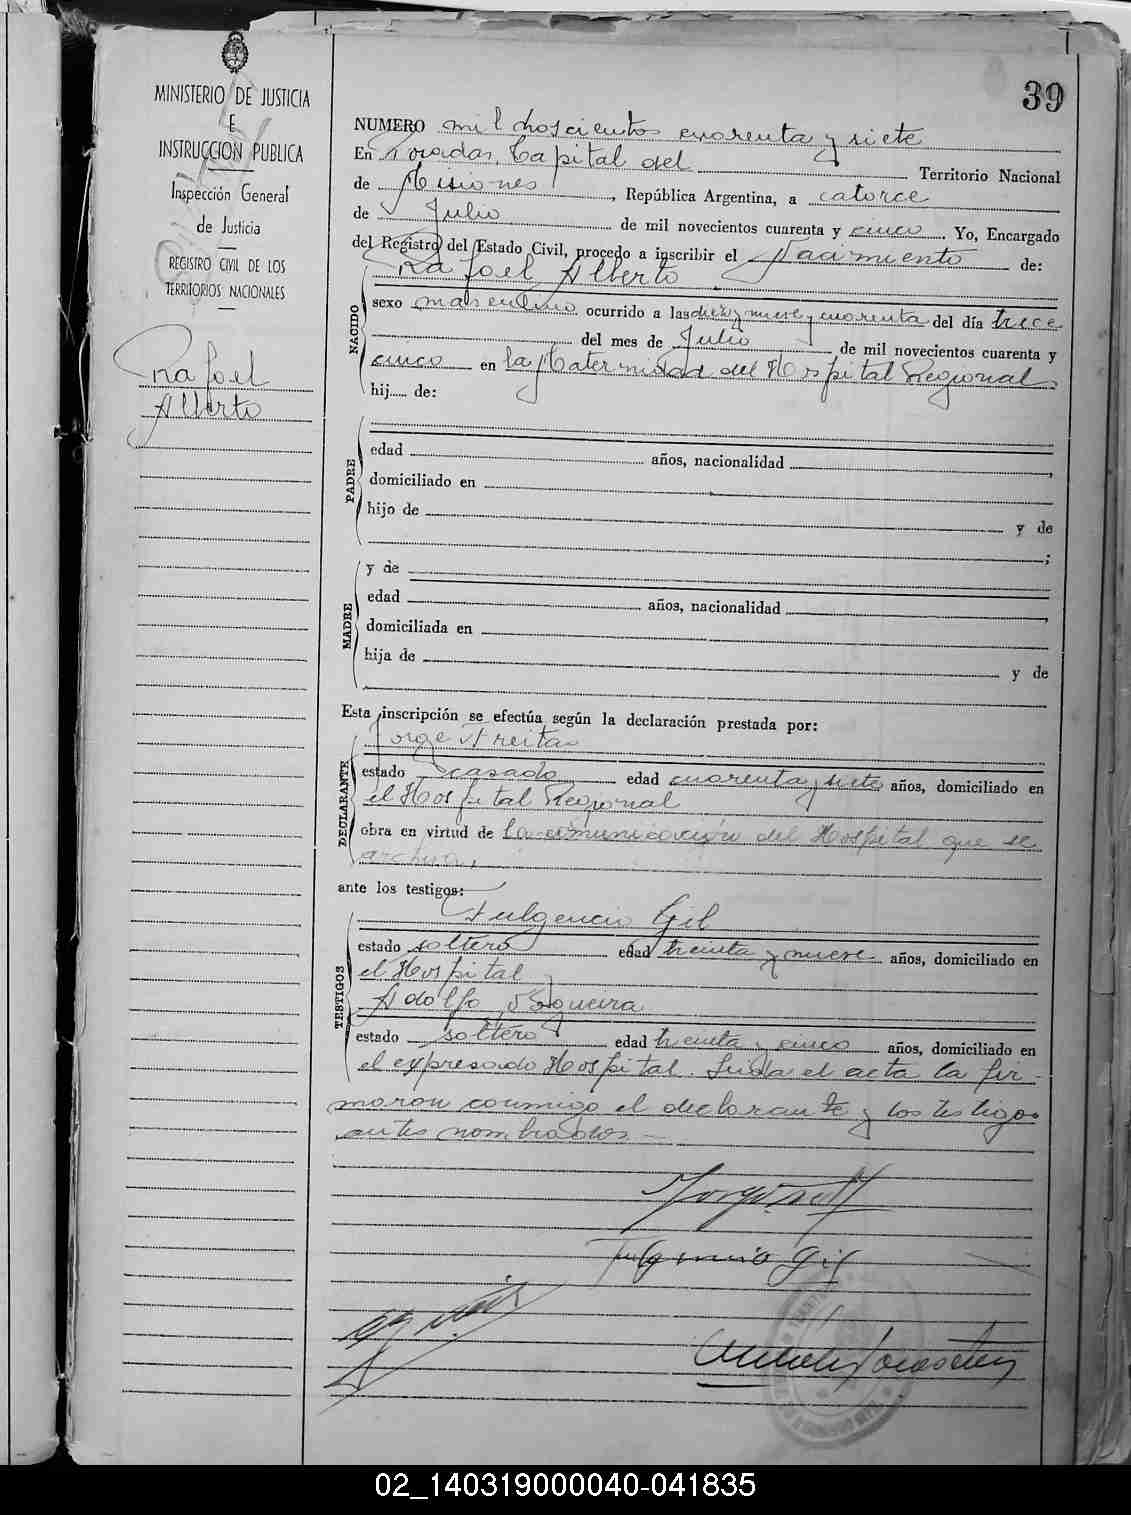 39
MINISTERIO DE JUSTICIA
E
INSTRUCCIÓN PUBLICA
Inspección General
de Justicia
REGISTRO CIVIL DE LOS
TERRITORIOS NACIONALES
Rafael
Alberto
NUMERO mil doscientos cuarenta y siete
En Posadas, Capital del Territorio Nacional
de Misiones, República Argentina, a catorce
de Julio de mil novecientos cuarenta y cinco. Yo, Encargado
del Registro del Estado Civil, procedo a inscribir el Nacimiento de:
NACIDO
Rafael Alberto
sexo masculino ocurrido a las diez y nueve y cuarenta del día trece
del mes de Julio de mil novecientos cuarenta y
cinco en la Maternidad del Hospital Regional
hij..... de:
PADRE
edad años, nacionalidad
domiciliado en
hijo de y de
;
MADRE
y de
edad años, nacionalidad
domiciliada en
hija de y de
Esta inscripción se efectúa según la declaración prestada por:
DECLARANTE
Jorge Freitas
estado casado edad cuarenta y siete años, domiciliado en
el Hospital Regional
obra en virtud de la comunicación del Hospital que se
archiva,
ante los testigos:
TESTIGOS
Fulgencio Gil
estado soltero edad treinta y nueve años, domiciliado en
el Hospital y
Adolfo Sequeira
estado soltero edad treinta y cinco años, domiciliado en
el expresado Hospital. Leída el acta la fir-
maron conmigo el declarante y los testigos
antes nombrados.—
Fulgencio Gil
02_140319000040-041835